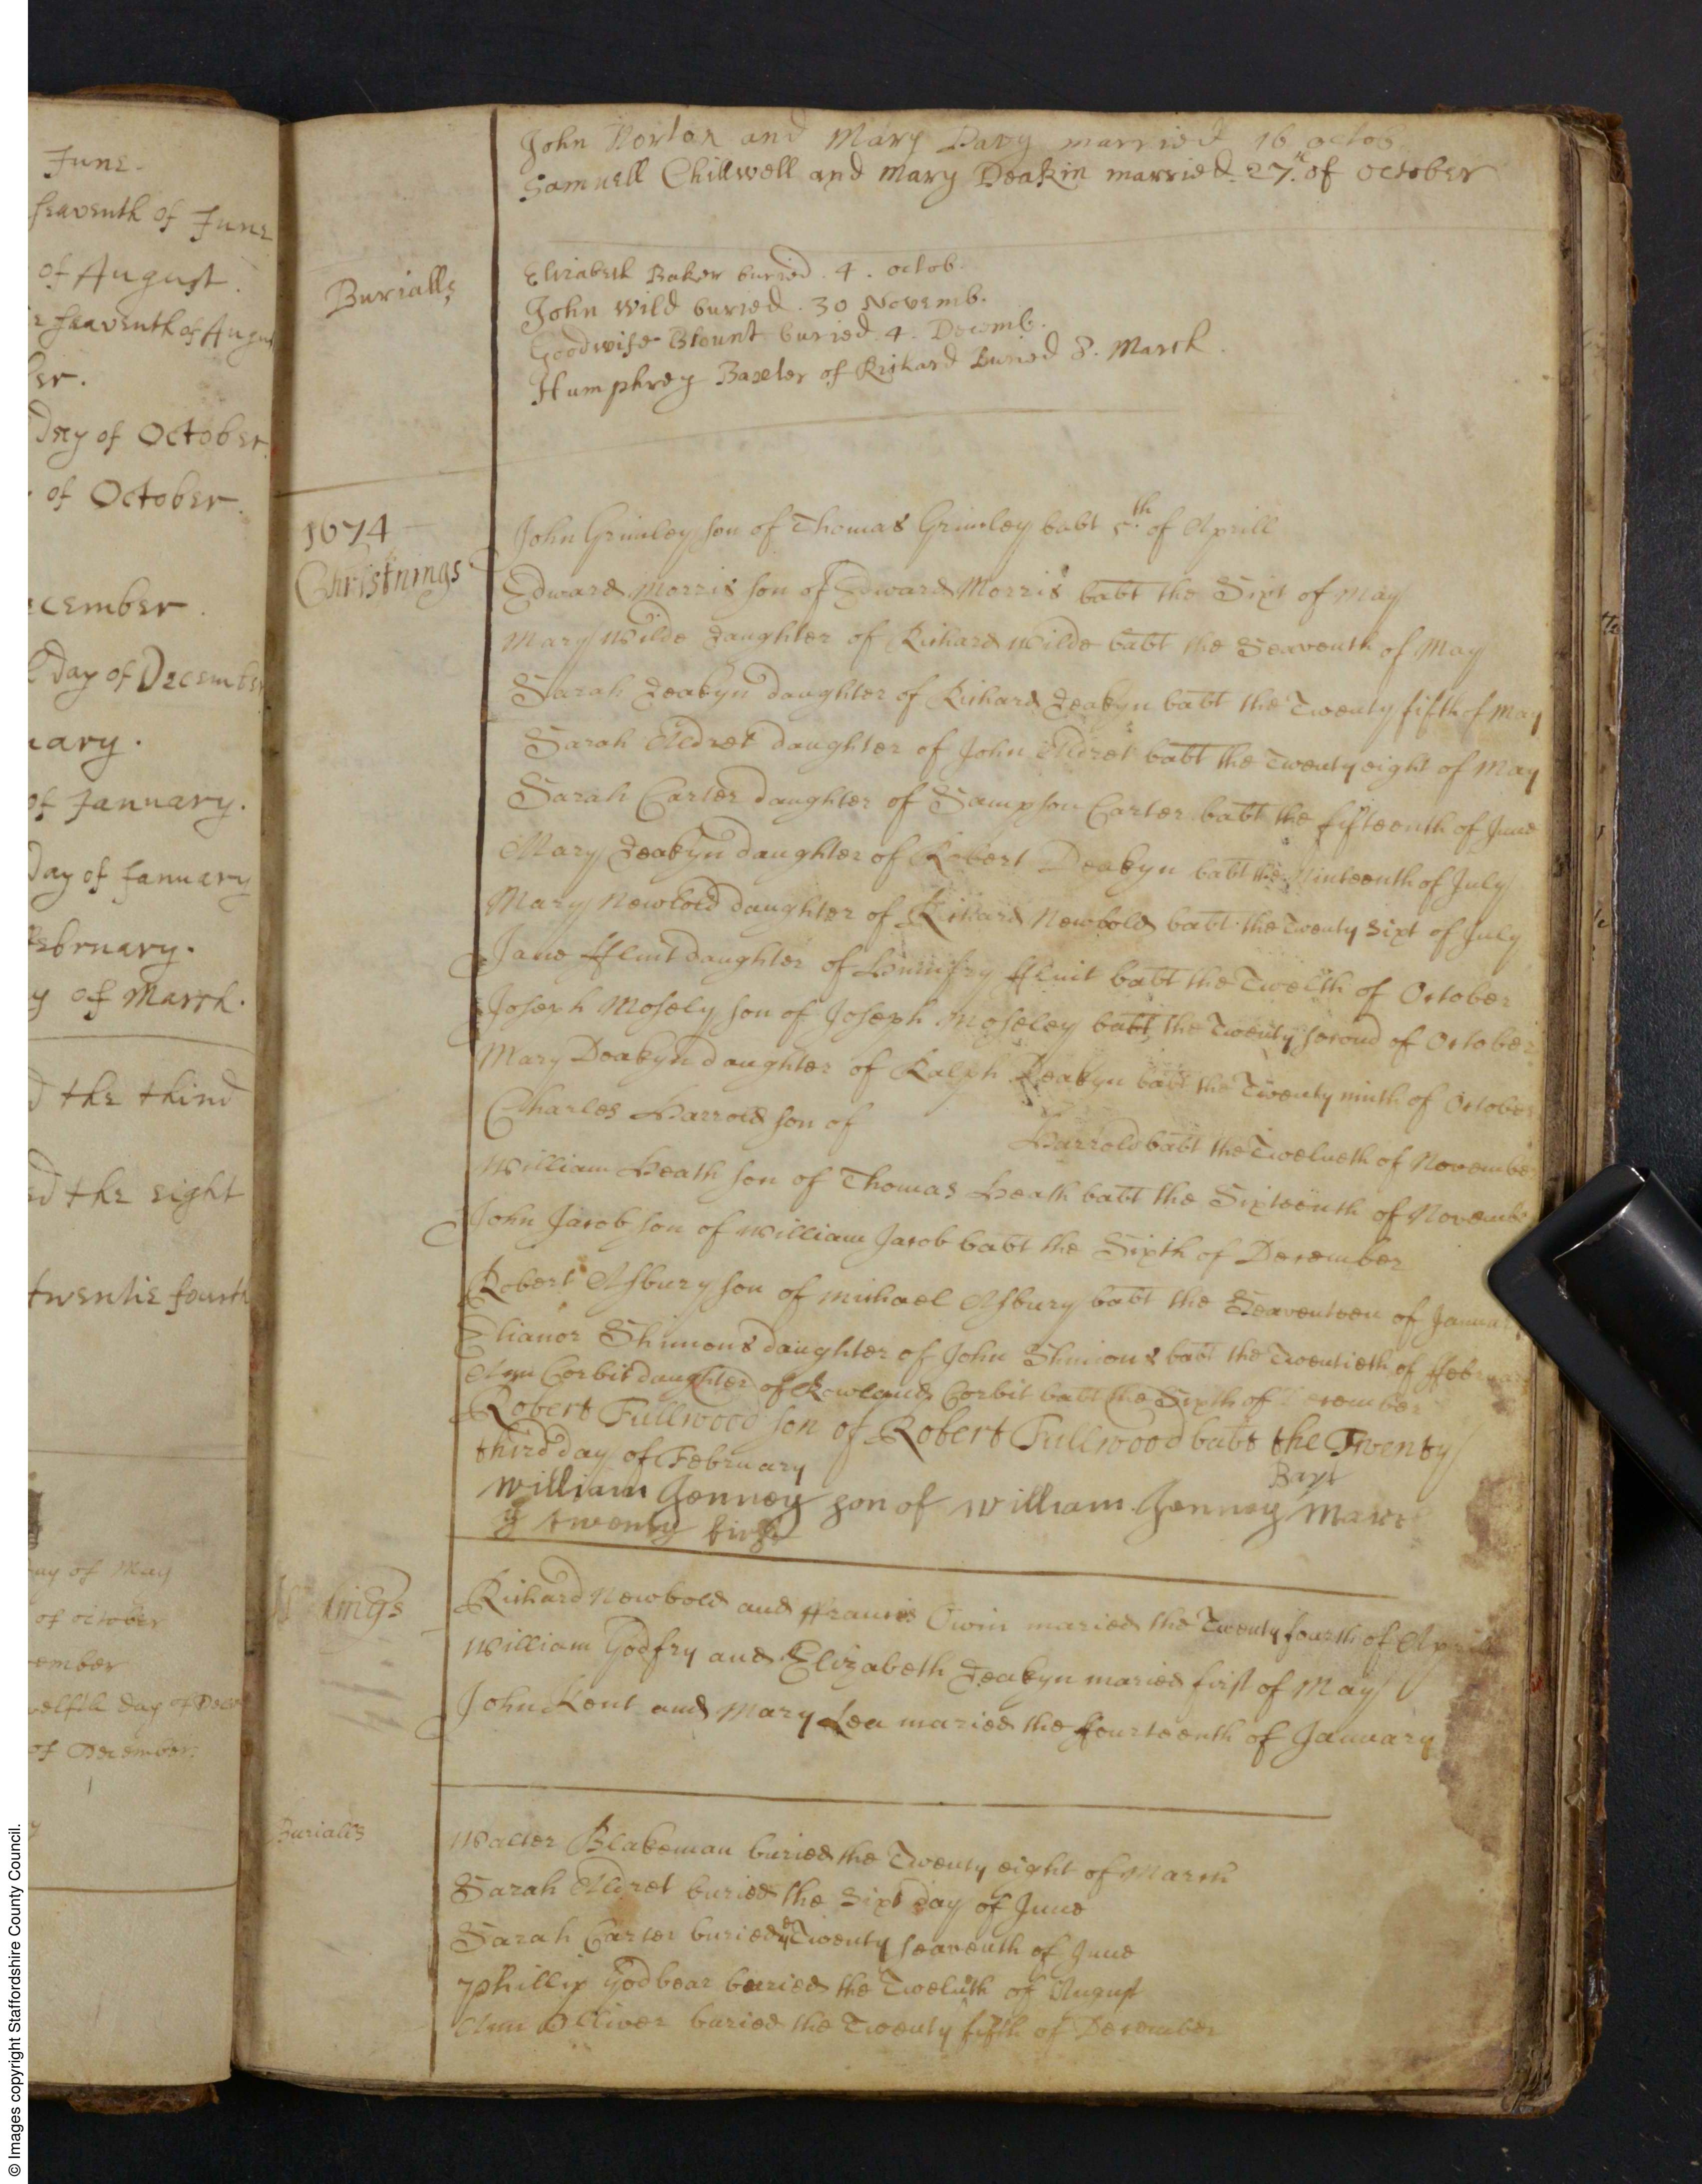 June.
seaventh of June
of August.
seaventh of Augus
ber.
Day of October.
of October.
cember.
Day of Decembe
uary.
of January.
Day of January
February.
y of March.
d the third
d the eight
twentie fourth
ay of May
of october
ember
welfth day of Dece
of December
John Norton and Mary Davy married 16 octob
Samuell Chillwell and mary Deakin married 27th of october
Burialls
Elizabeth Baker buried . 4 . octob.
John Wild buried . 30 Novemb.
Goodwife Blount buried . 4 . Decemb.
Humphrey Baxeler of Rickard Buried 8. March.
1674
Christnings
John Grimley son of Thomas Grimley babt 5th of Aprill
Edward Morris son of Edward Morris babt the Sixt of May
Mary Wilde daughter of Richard Wilde babt the Seaventh of May
Sarah Deakyn daughter of Richard Deakyn babt the Twenty fifth of May
Sarah Aldret daughter of John Aldret babt the Twenty eight of May
Sarah Carter daughter of Sampson Carter babt the fifteenth of June
Mary Deakyn daughter of Robert Deakyn babt the Ninteenth of July
Mary Newbold daughter of Richard Newbold babt the Twenty Sixt of July
Jane fflint daughter of Humfry fflint babt the Twelth of October
Joseph Mosely son of Joseph Moseley babt the Twenty second of October
Mary Deakyn daughter of Ralph Deakyn babt the Twenty ninth of October
Charles Harrold son of Harrold babt the Twelueth of November
William Heath son of Thomas Heath babt the Sixteenth of Novembe
John Jacob son of William Jacob babt the Sixth of December
Robert Asbury son of Michael Asbury babt the Seaventeen of Januar
Elianor Shimons daughter of John Shimons babt the Twentieth of ffebruar
Ann Corbit daughter of Rowland Corbit babt the Sixth of December
Robert Fullwood son of Robert Fullwood babt the Twenty
third day of February
Bapt
William Jenney son of William Jenney Marc
ye twenty first
Richard Newbold and ffrancis Owin maried the Twenty fourth of Aprill
William Godfry and Elizabeth Deakyn maried first of May
John Kent and Mary Lea maried the fourteenth of January
Burialls
Walter Blakeman buried the Twenty eight of March
Sarah Aldret buried the Sixt day of June
Sarah Carter buried ye Twenty seaventh of June
Phillip Godbear buried the Twelfth of August
Ann Olliver buried the Twenty fifth of December
© Images copyright Staffordshire County Council.